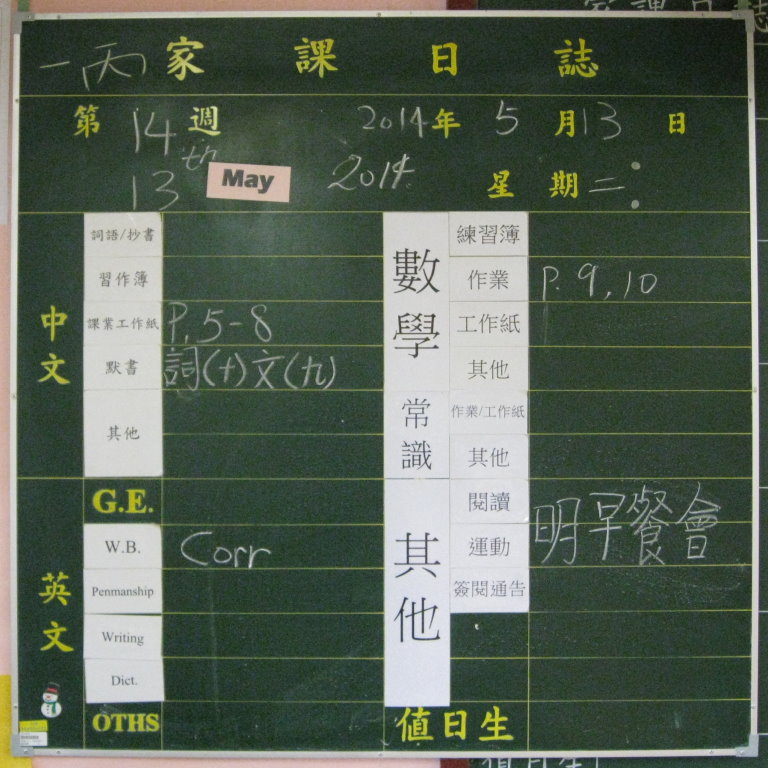 一丙 家課日誌
第 14 週 2014 年 5 月 13 日
13th May 2014 星期二:
中文
詞語/抄書
習作簿
課業工作紙 P.5-8
默書 詞(十)文(九)
其他
G.E.
英文
W.B. Corr
Penmanship
Writing
Dict.
OTHS
數學
練習簿
作業 P.9,10
工作紙
其他
常識
作業/工作紙
其他
其他
閱讀
運動 明早餐會
簽閱通告
值日生